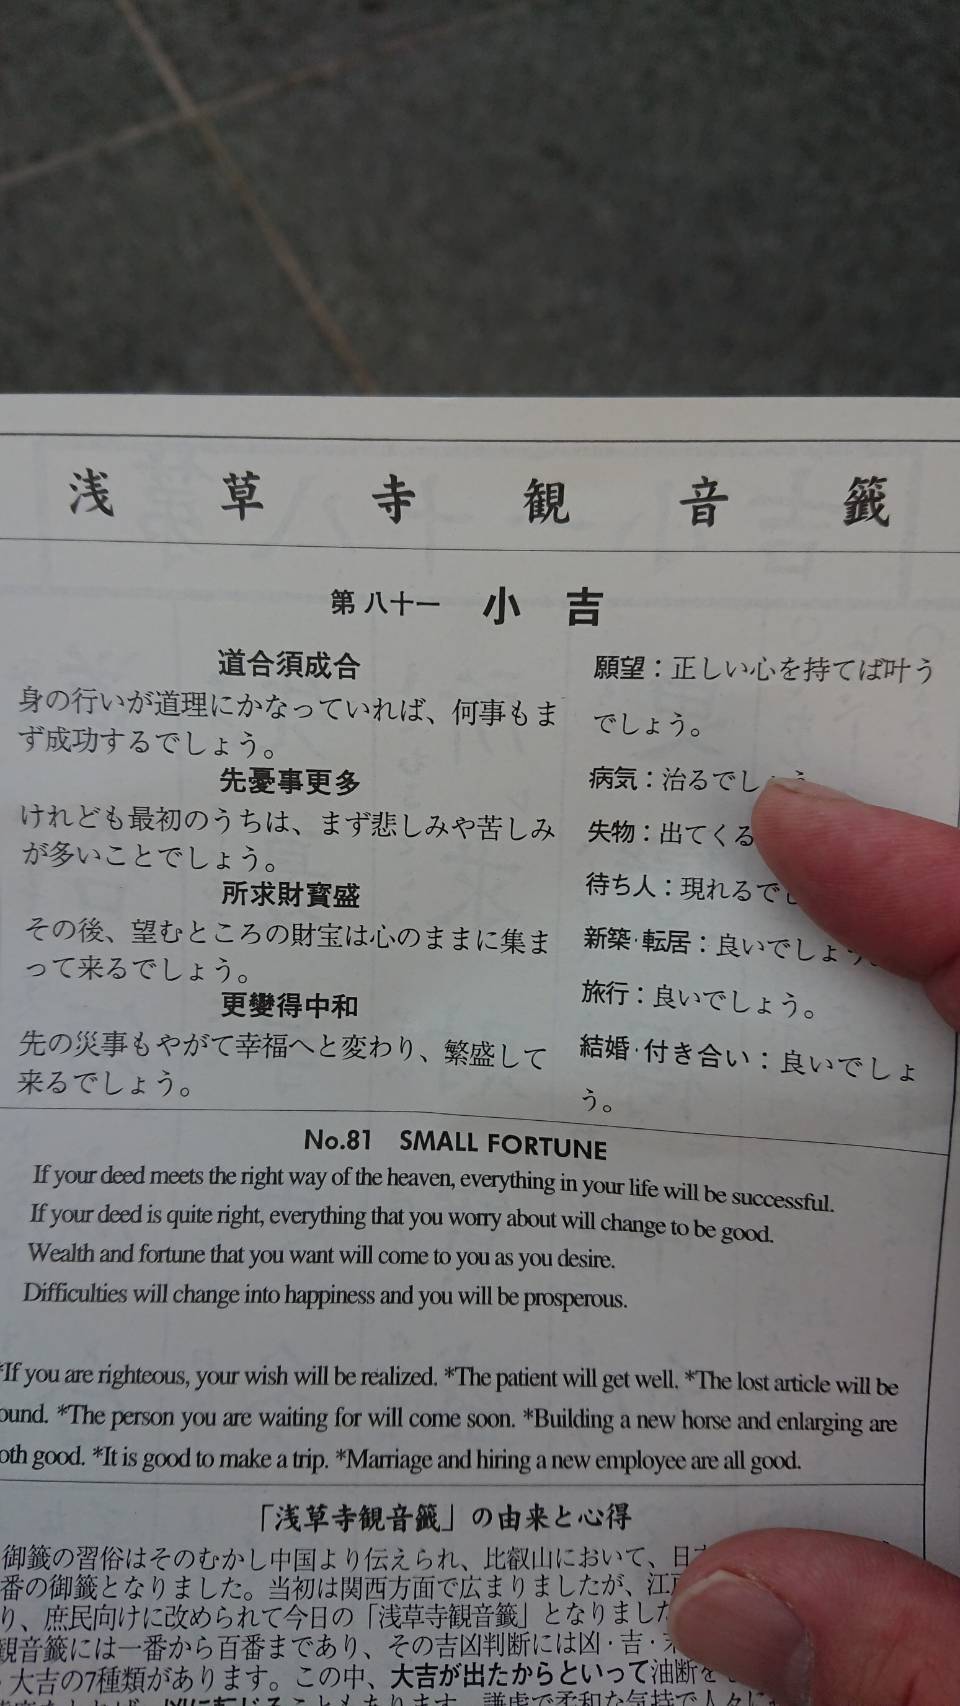 浅草寺観音籤
第八十一 小吉
道合須成合
身の行いが道理にかなっていれば、何事もま
ず成功するでしょう。
先憂事更多
けれども最初のうちは、まず悲しみや苦しみ
が多いことでしょう。
所求財寳盛
その後、望むところの財宝は心のままに集ま
って来るでしょう。
更變得中和
先の災事もやがて幸福へと変わり、繁盛して
来るでしょう。
願望：正しい心を持てば叶う
でしょう。
病気：治るでしょう
失物：出てくる
待ち人：現れるで
新築·転居：良いでしょう。
旅行：良いでしょう。
結婚·付き合い：良いでしょ
う。
No.81 SMALL FORTUNE
If your deed meets the right way of the heaven, everything in your life will be successful.
If your deed is quite right, everything that you worry about will change to be good.
Wealth and fortune that you want will come to you as you desire.
Difficulties will change into happiness and you will be prosperous.
*If you are righteous, your wish will be realized. *The patient will get well. *The lost article will be
ound. *The person you are waiting for will come soon. *Building a new horse and enlarging are
oth good. *It is good to make a trip. *Marriage and hiring a new employee are all good.
「浅草寺観音籤」の由来と心得
御籤の習俗はそのむかし中国より伝えられ、比叡山において、日
番の御籤となりました。当初は関西方面で広まりましたが、江
り、庶民向けに改められて今日の「浅草寺観音籤」となりました
観音籤には一番から百番まであり、その吉凶判断には凶·吉·末
大吉の7種類があります。この中、大吉が出たからといって油断を
ば、凶に転じることもあります。謙虚で柔和な気持で人々に